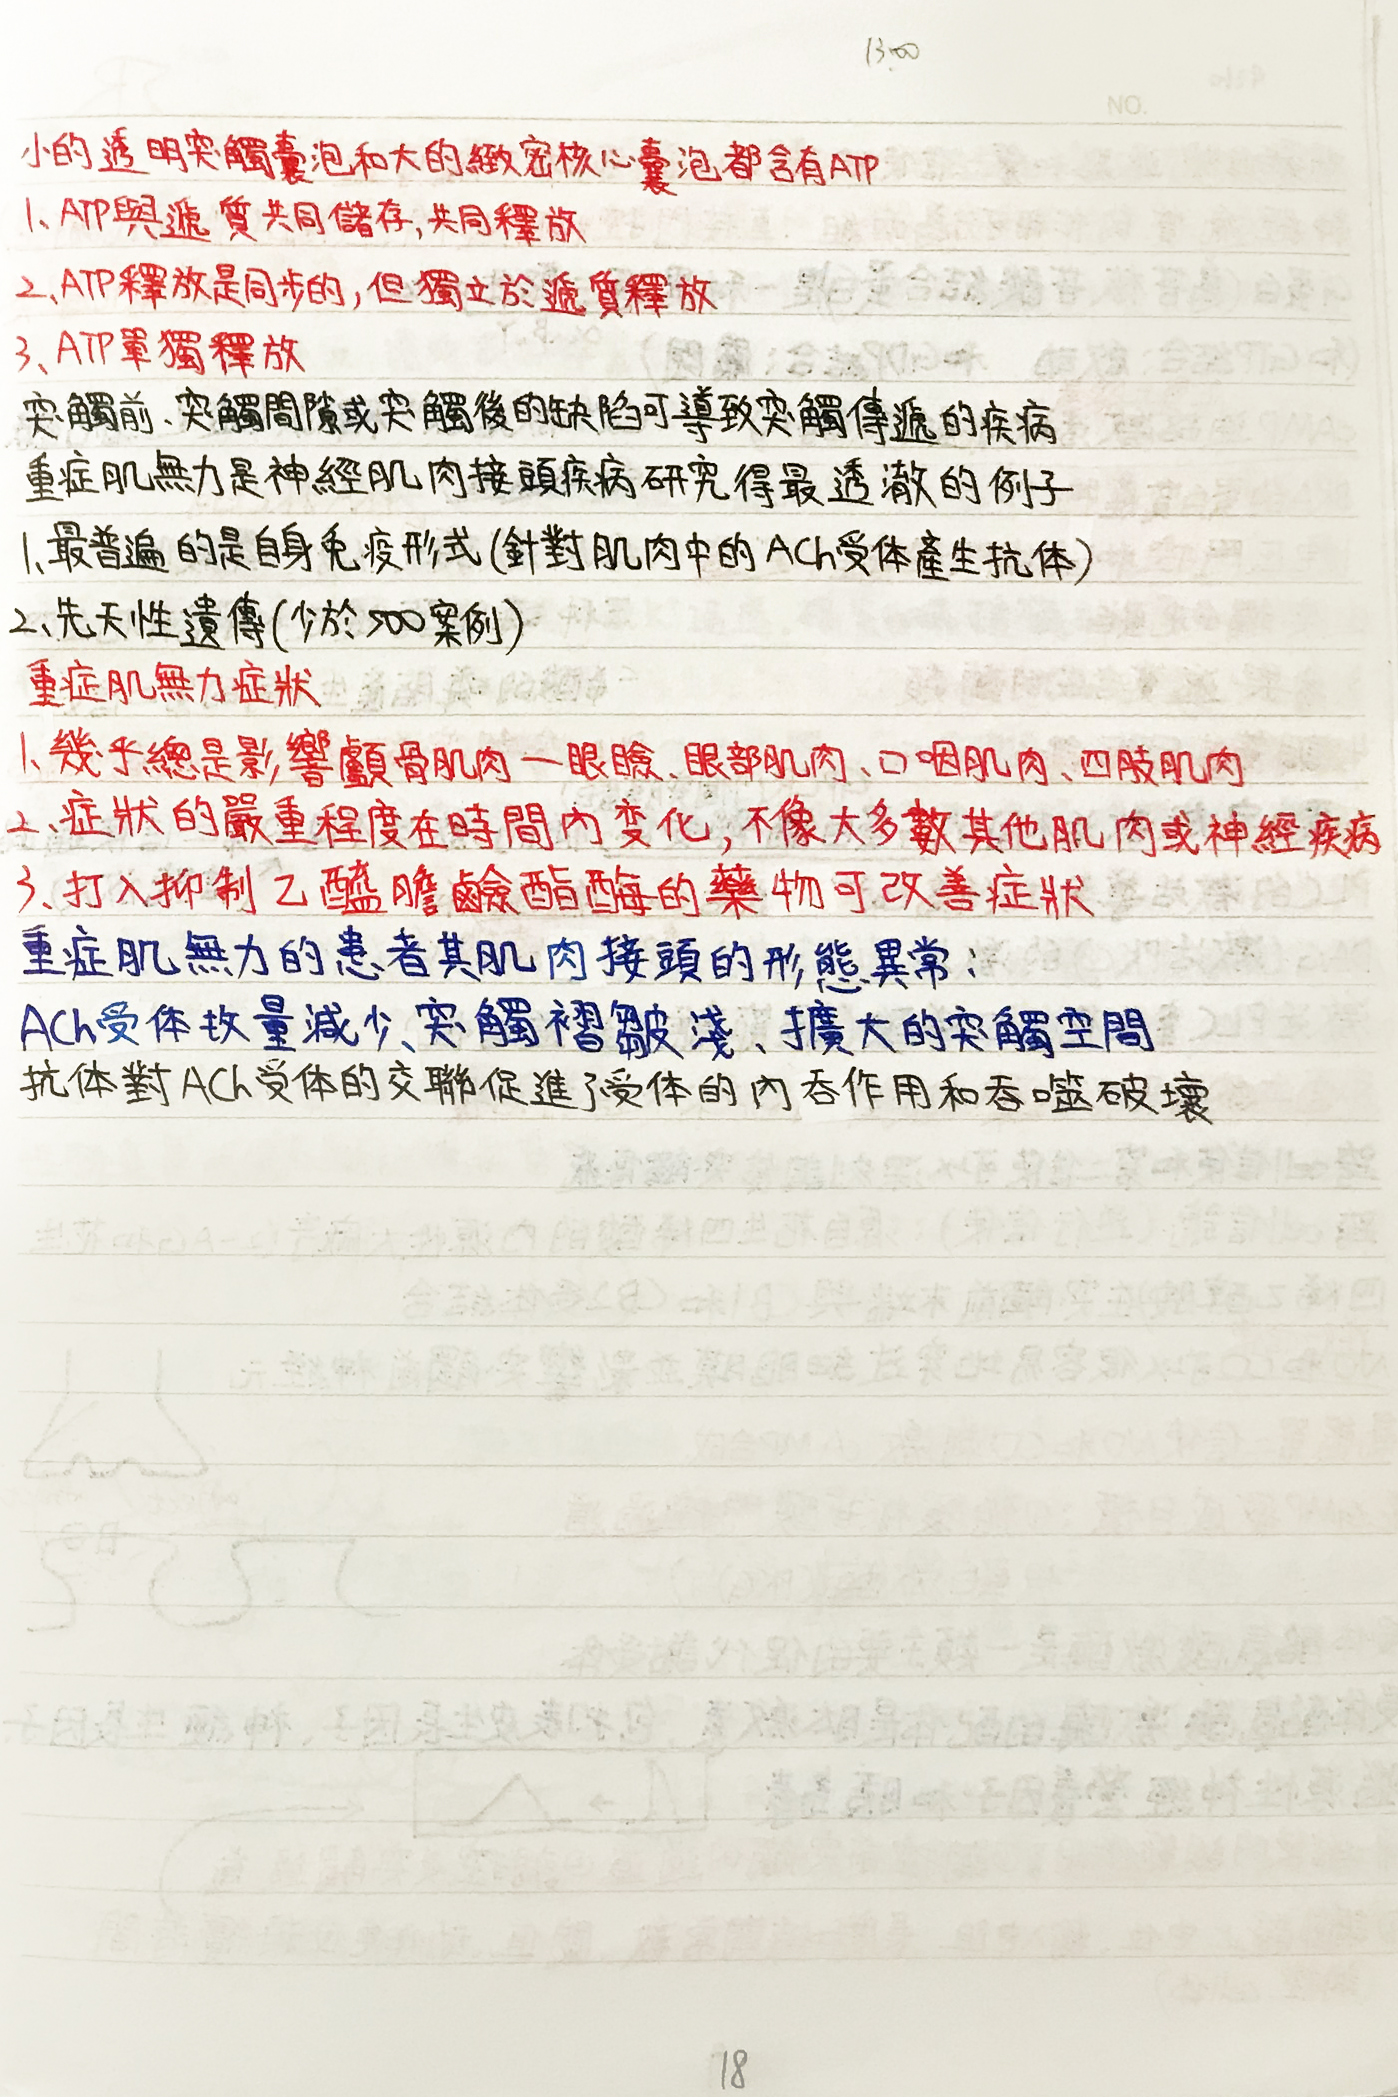 13:00
小的透明突觸囊泡和大的緻密核心囊泡都含有ATP
1、ATP與遞質共同儲存,共同釋放
2、ATP釋放是同步的,但獨立於遞質釋放
3、ATP單獨釋放
突觸前、突觸間隙或突觸後的缺陷可導致突觸傳遞的疾病
重症肌無力是神經肌肉接頭疾病研究得最透澈的例子
1、最普遍的是自身免疫形式(針對肌肉中的ACh受体產生抗体)
2、先天性遺傳(少於500案例)
重症肌無力症狀
1、幾乎總是影響顱骨肌肉一眼瞼、眼部肌肉、口咽肌肉、四肢肌肉
2、症狀的嚴重程度在時間內变化,不像大多數其他肌肉或神經疾病
3、打入抑制乙醯膽鹼酯酶的藥物可改善症狀
重症肌無力的患者其肌肉接頭的形態異常:
ACh受体数量減少、突觸褶皺淺、擴大的突觸空間
抗体對ACh受体的交聯促進了受体的內吞作用和吞噬破壞
18